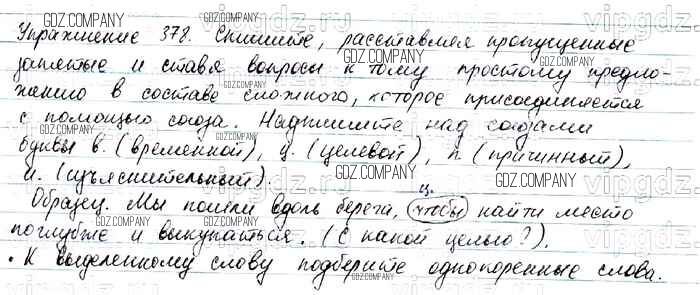 Упражнение 378. Спишите, расставляя пропущенные
запятые и ставя вопросы к тому простому предло-
жению в составе сложного, которое присоединяется
с помощью союза. Надпишите над союзами
буквы в. (временной), ц. (целевой), п (причинный),
и. (изъяснительный).
ц.
Образец. Мы пошли вдоль берега, чтобы найти место
поглубже и выкупаться. (С какой целью?).
• К выделенному слову подберите однокоренные слова.
GDZ.COMPANY
vipgdz.ru